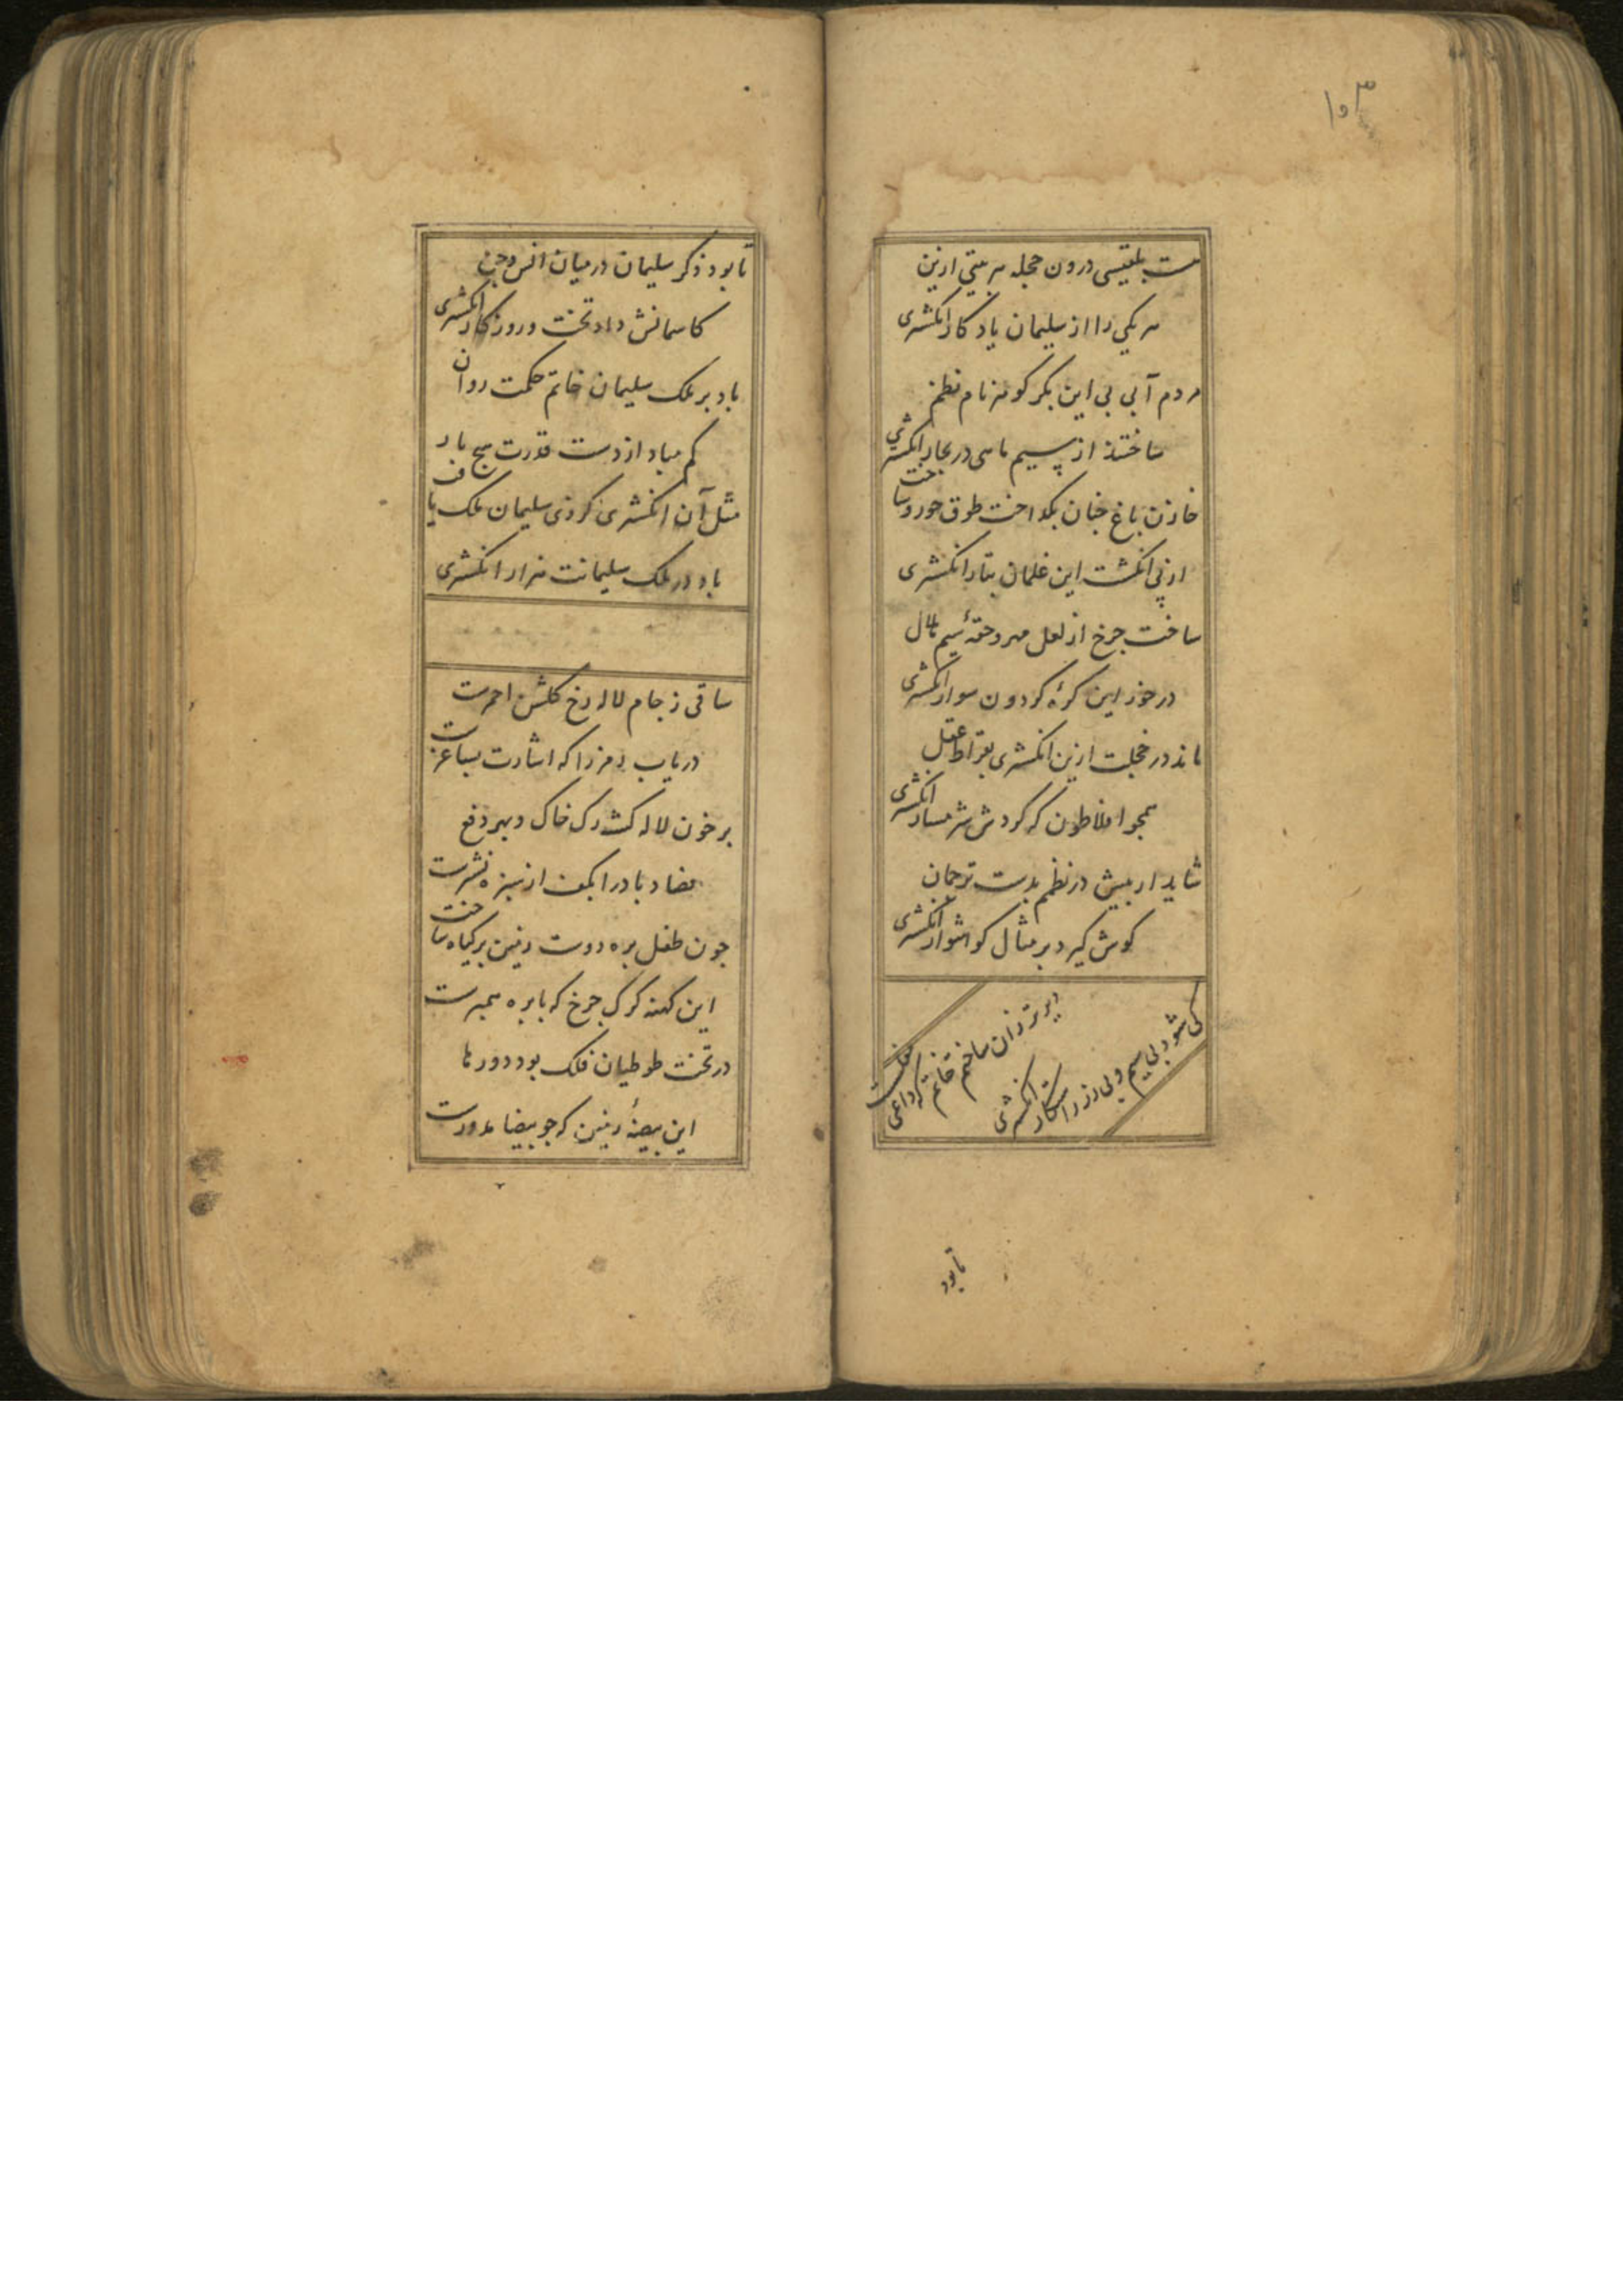 ۱۵۳
هست بلقیسی درون حجله هر بیتی ازین
هر یکی را از سلیمان یادکار انکشتری
مردم آبی بی این بکر کوهر نام نظم
ساختند از سیم ماهی در بحار انکشتری
خازن باغ جنان بکداخت طوق حور و ساخت
از پی انکشت این غلمان بنار انکشتری
ساخت جرخ از لعل مهر و حقهٔ سیم هلال
در خور این کرهٔ کردون سوار انکشتری
ماند در خجلت ازین انکشتری بقراط عقل
همجو افلاطون که کردش شرمسار انکشتری
شاید ار بیش در نظمم بدست ترجمان
کوش کیرد بر مثال کوشوار انکشتری
دیرتر زان ساختم خاتم که داعی مفلست
کی شود بی سیم و بی زر راستکار انکشتری
تا بود
تا بود ذکر سلیمان در میان انس و جن
کاسمانش داد تخت و روزکار انکشتری
باد بر ملک سلیمان خاتم حکمت روان
کم مباد از دست قدرت هیج بار
مثل آن انکشتری کزوی سلیمان ملک یافت
باد در ملک سلیمانت هزار انکشتری
ساقی ز جام لاله رخ کلشن احمرست
دریاب رمز را که اشارت بساغرست
بر خون لاله کشت رک خاک و بهر دفع
فصاد باد را بکف از سبزه نشترست
جون طفل بره دوست زمین بر کیاه ساخت
این کهنه کرک جرخ که با بره همبرست
در تخت طوطیان فلک بود دورها
این بیضهٔ زمین که جو بیضا مدورست